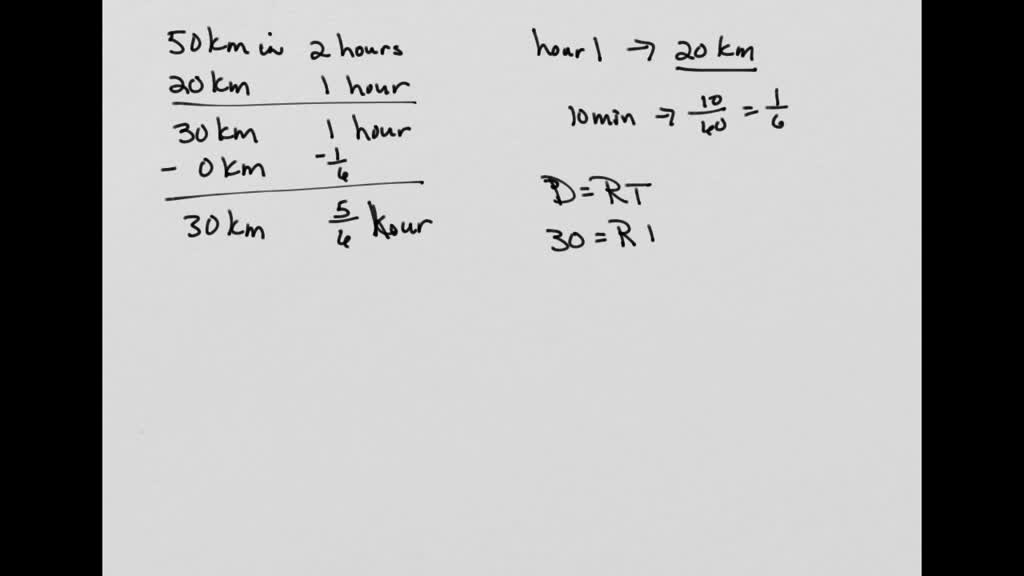 50 km in 2 hours
20 km 1 hour
30 km 1 hour
- 0 km - 1/6
30 km 5/6 hour
hour 1 → 20 km
10 min → 10/60 = 1/6
D = RT
30 = R 1